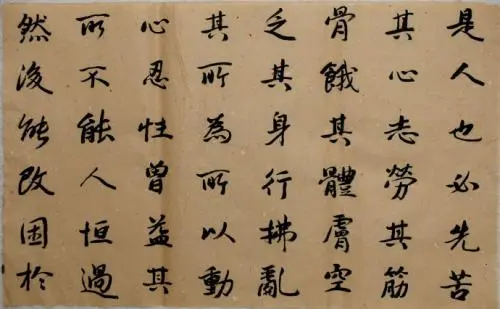 是人也必先苦
其心志勞其筋
骨餓其體膚空
乏其身行拂亂
其所為所以動
心忍性曾益其
所不能人恒過
然後能改困於